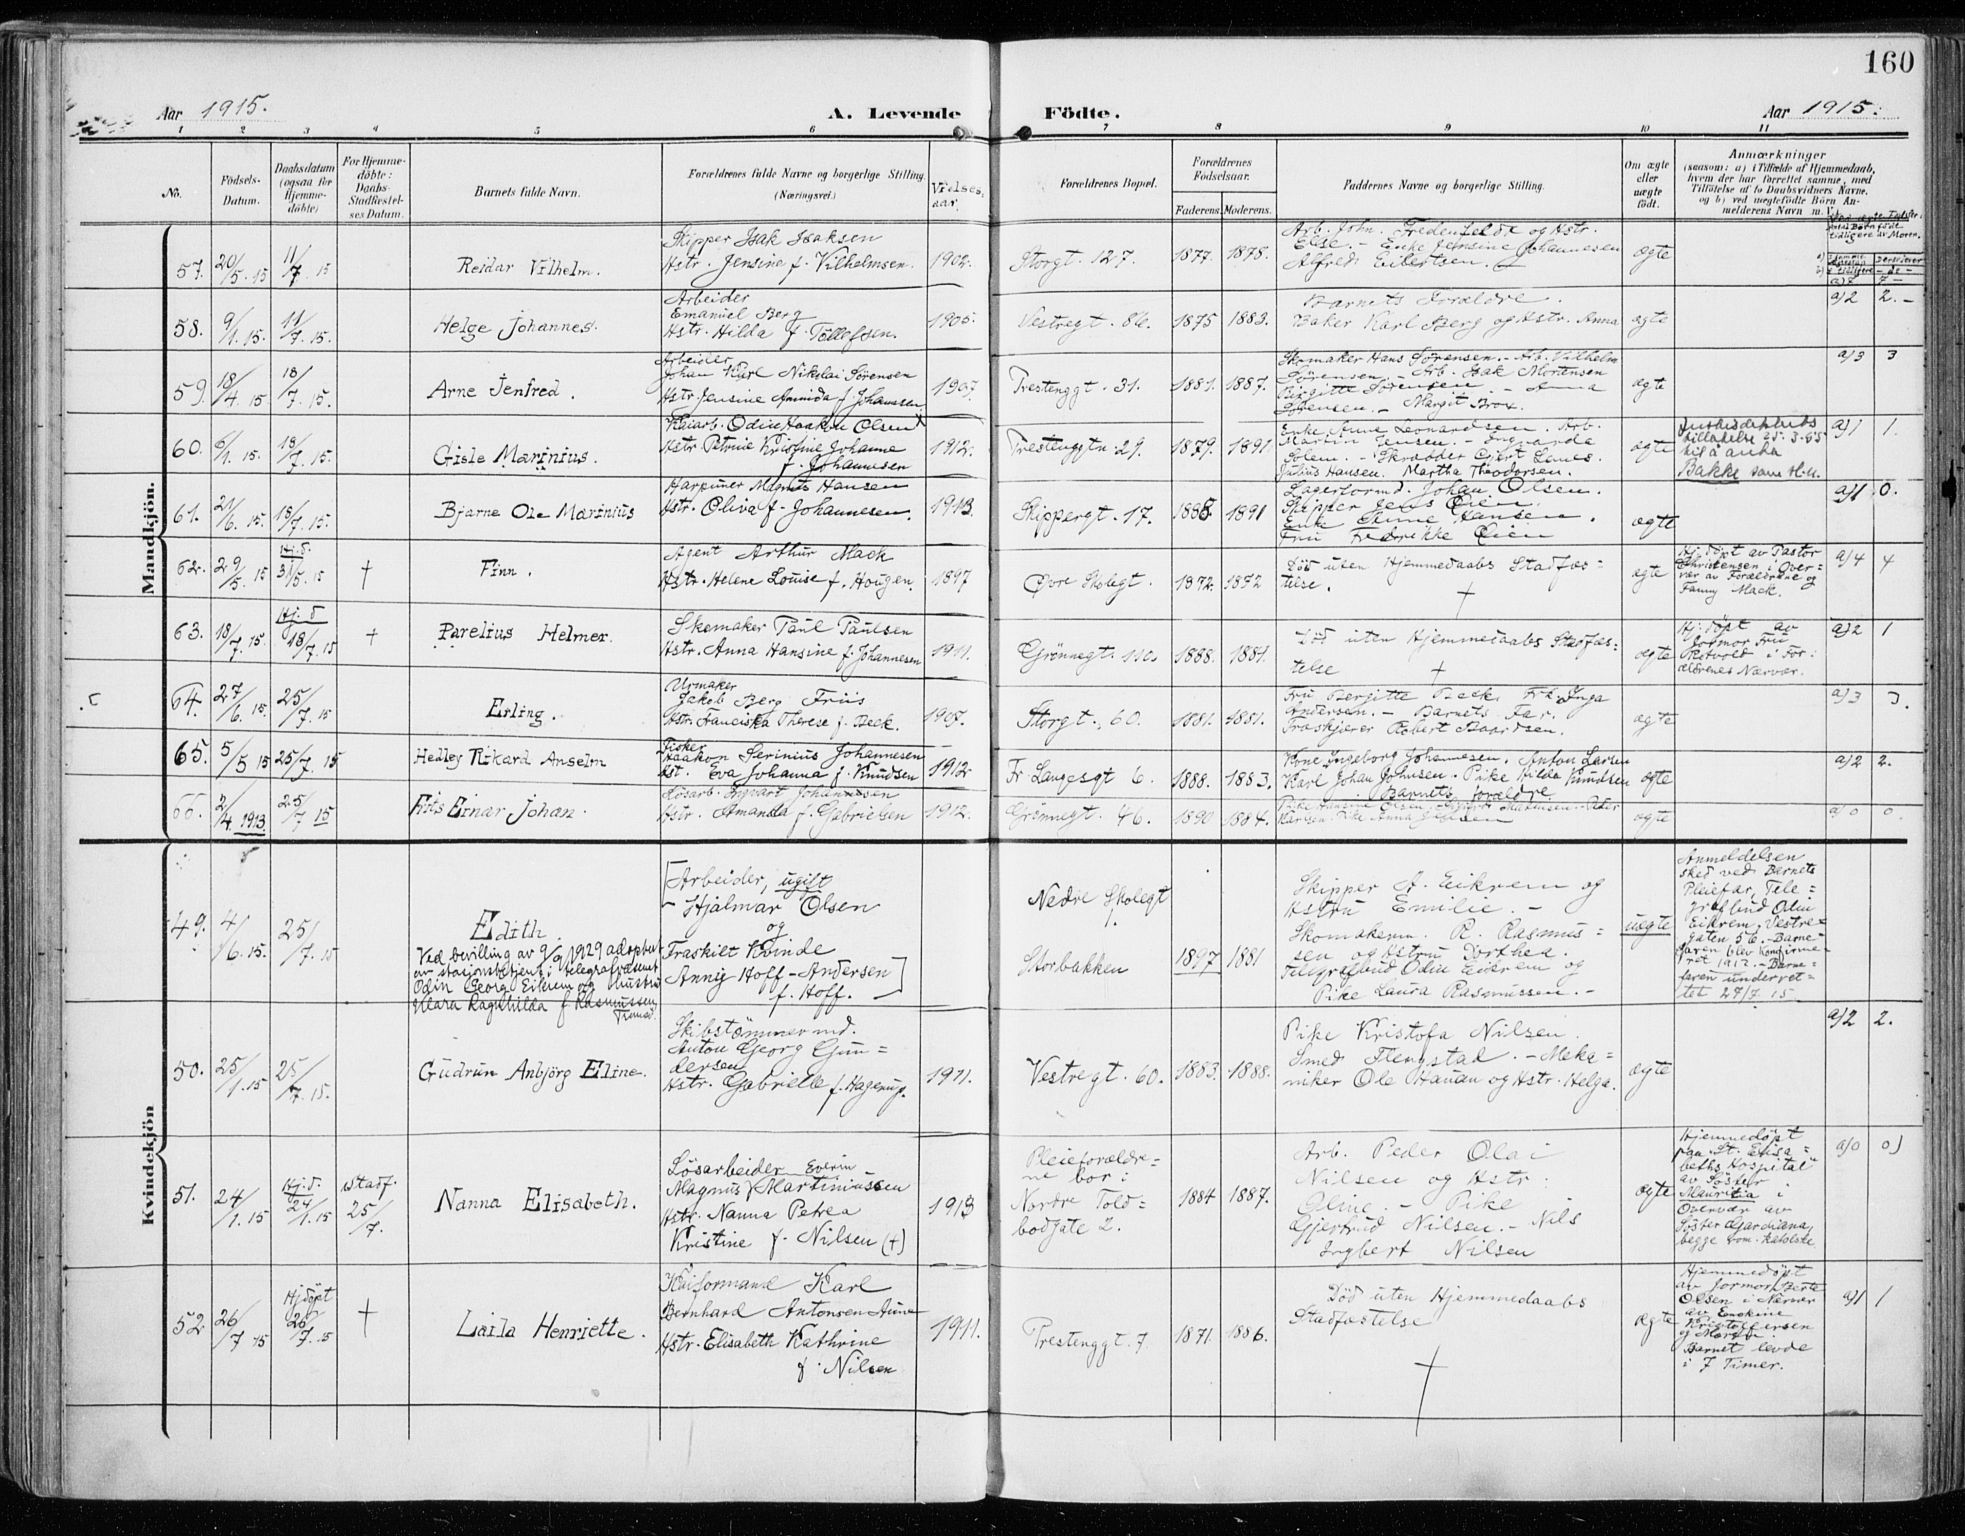 160
Aar 1915.
A. Levende
Födte.
Aar 1915.
1 2 3 4 5 6 7 8 9 10 11
No.
Födsels-
Datum.
Daabsdatum
(ogsaa for
Hjemme-
döbte)
For Hjemme-
döbte:
Daabs-
Stadfestel-
ses Datum.
Barnets fulde Navn.
Forældrenes fulde Navne og borgerlige Stilling.
(Næringsvei.)
Vielses-
aar.
Forældrenes Bopæl.
Forældrenes
Födselsaar.
Faderens. Moderens.
Faddernes Navne og borgerlige Stilling.
Om ægte
eller
uægte
födt.
Anmærkninger
(saasom: a) i Tilfælde af Hjemmedaab,
hvem der har forrettet samme, med
Tilföielse af to Daabsvidners Navne,
og b) ved uægtefödte Börn An-
melderens Navn m. V.
Mandkjön.
57. 20/5. 15 11/7 15
Reidar Vilhelm.
Skipper Isak Isaksen
Hstr. Jensine f. Vilhelmsen.
1902.
Storgt. 127. 1877. 1878.
Else. - Enke Jensine Johannesen
Alfred Eilertsen.
ægte
a)7 7 -
58. 9/1. 15. 11/7. 15.
Helge Johannes.
Arbeider
Emanuel Berg
Hstr. Hilda f. Tollefsen.
1905.
Vestregt. 86. 1875 1883.
Barnets Forældre.
Baker Karl Berg og Hstr. Anna
ægte
a)2 2. -
59. 18/4. 15 18/7. 15.
Arne Jenfred.
Arbeider
Johan Karl Nikolai Sörensen
Hstr. Jensine Amanda f. Johansen
1907.
Prestenggt. 31. 1881. 1887.
Skomaker Hans Sörensen. - Arb. Vilhelm
Sörensen. - Arb. Isak Mortensen
Birgitte Sörensen - Anna
Sörensen. - Margit Brox.
ægte
a)3 3
60. 6/1. 15. 18/7. 15.
Gisle Marinius.
Kaiarb. Odin Haakon Olsen
Hstr Petrine Kristine Johanne
f. Johannesen
1912.
Prestenggtn 29. 1879. 1891
Enke Anne Leonardsen. Arb.
Martin Jensen. - Ingvarda
Solem. - Skrædder Ejert Lenes.
Julius Hansen. Martha Theodorsen.
ægte
Justisdeptets
tillatelse 25.3.55
til å anta
Bakke som sl.n.
a)1 1.
61. 21/6. 15. 18/7. 15.
Bjarne Ole Marinius
Harpuner Magnus Hansen
Hstr. Oliva f. Johannesen.
1913.
Skippergt. 17. 1888 1891
Lagerformd. Johan Olsen.
Skipper Jens Eien
Enke Anne Hansen.
Fru Fredrikke Eien
ægte
a)1 0.
62. 29/5. 15 Hj.d. 31/5. 15 †
Finn.
Agent Arthur Mack
Hstr. Helene Louise f. Hougen.
1897
Övre Skolegt. 1872. 1872
Död uten Hjemmedaabs Stadfæs-
telse. †
ægte
Hj. döpt av Pastor
Christensen i Over-
vær av Forældrene og
Fanny Mack.
a)4 4
63. 18/7. 15 Hj. d 18/7. 15 †
Parelius Helmer.
Skomaker Paul Paulsen
Hstr. Anna Hansine f. Johannesen
1911.
Grönnegt. 110. 1888. 1884.
Död uten Hjemmedaabs Stadfæs-
telse †
ægte
Hj. döpt av
Jormor Fru
Rotvold i For-
ældrenes Nærvær.
a)2 1
64. 27/6. 15. 25/7. 15
Erling.
Urmaker
Jakob Berg Friis
Hstr. Franciska Therese f. Beck.
1907.
Storgt. 60. 1881. 1881.
Fru Bergitte Beck. Frk. Inga
Andersen. - Barnets Far.
Fraskjærer Robert Baardsen.
ægte
a)3 3.
65. 5/5 15 25/7. 15
Hedley Rikard Anselm
Fisker
Haakon Serinius Johannesen
Hst. Eva Johanna f. Knudsen
1912
Fr Langesgt 6. 1888. 1883.
Kone Ingeborg Johannesen. Anton Larsen
Karl Johan Johnsen. Pike Hilda Knudsen
Barnets forældre
ægte
a)2 2.
66. 2/4. 1913. 25/7 15
Friis Einar Johan.
Lösarb. Edvart Johannesen
Hstr. Amanda f. Gabrielsen
1912.
Grönnegt. 46. 1890 1884.
ægte
a)0 0.
Kvindekjön
49. 4/6. 15. 25/7. 15
Edith.
Ved bevilling av 9/9 1929 adoptert
av stasjonsbetjent i telegrafvæsenet
Odin Georg Eikrem og hustru
Klara Ragnhilda f. Rasmussen
Tromsö.
Arbeider, ugift
Hjalmar Olsen
og
Fraskilt Kvinde
Anny Hoff-Andersen
f. Hoff.
Nedre Skolegt
Storbakken 1897 1881
Skipper A. Eikrem og
Hstru Emilie. -
Skomakerm. R. Rasmus-
sen og Hstru Dorthea.
Telegrafbud Odin Eikrem og
Pike Laura Rasmussen. -
uegte
Anmeldelsen
sked ved Barnets
Pleiefar, Tele-
grafbud Odin
Eikrem, Vestre-
gaten 56. - Barne-
faren blev Konfirme-
ret 1912. - Barne-
faren underret-
tet 27/7 15
50. 25/1. 15 25/7. 15.
Gudrun Anbjörg Eline.
Skibstömmermd.
Anton Georg Gun-
dersen
Hstr. Gabrielle f. Hagerup.
1911.
Vestregt. 60. 1883. 1888.
Pike Kristofa Nilsen
Smed Flengstad. - Meka-
niker Ole Hauan og Hstr. Helga.
ægte
a)2 2.
51. 24/1. 15 Hj.d. 24/1. 15 stadf. 25/7.
Nanna Elisabeth.
Lösarbeider Everin
Magnus Martiniussen
Hstr. Nanna Petrea
Kristine f. Nilsen (†)
1913
Pleieforældre-
ne bor i
Nordre Told-
bodgate 2.
1884 1887.
Arb. Peder Olai
Nilsen og Hstr.
Oline. - Pike
Gjertrud Nilsen. - Nils
Ingbert Nilsen
ægte
Hjemmedöpt
paa St. Elisa-
beths Hospital
av Söster
Mauritia i
Overvær av
Söster Gardiana,
begge rom. katolske
a)0 0)
52 26/7 15 Hjdöpt 26/7. 15 †
Laila Henriette.
Kaiformand Karl
Bernhard Antonsen Aune
Hstr. Elisabeth Kathrine
f. Nilsen
1911.
Prestenggt. 7 1871. 1886.
Död uten Hjemmedaabs
Stadfæstelse
†
ægte
Hjemmedöpt
av Jormor Berte
Olsen i Nærvær
av Enokine
Kristoffersen
og Moren.
Barnet levde
i 7 Timer.
a)1 1